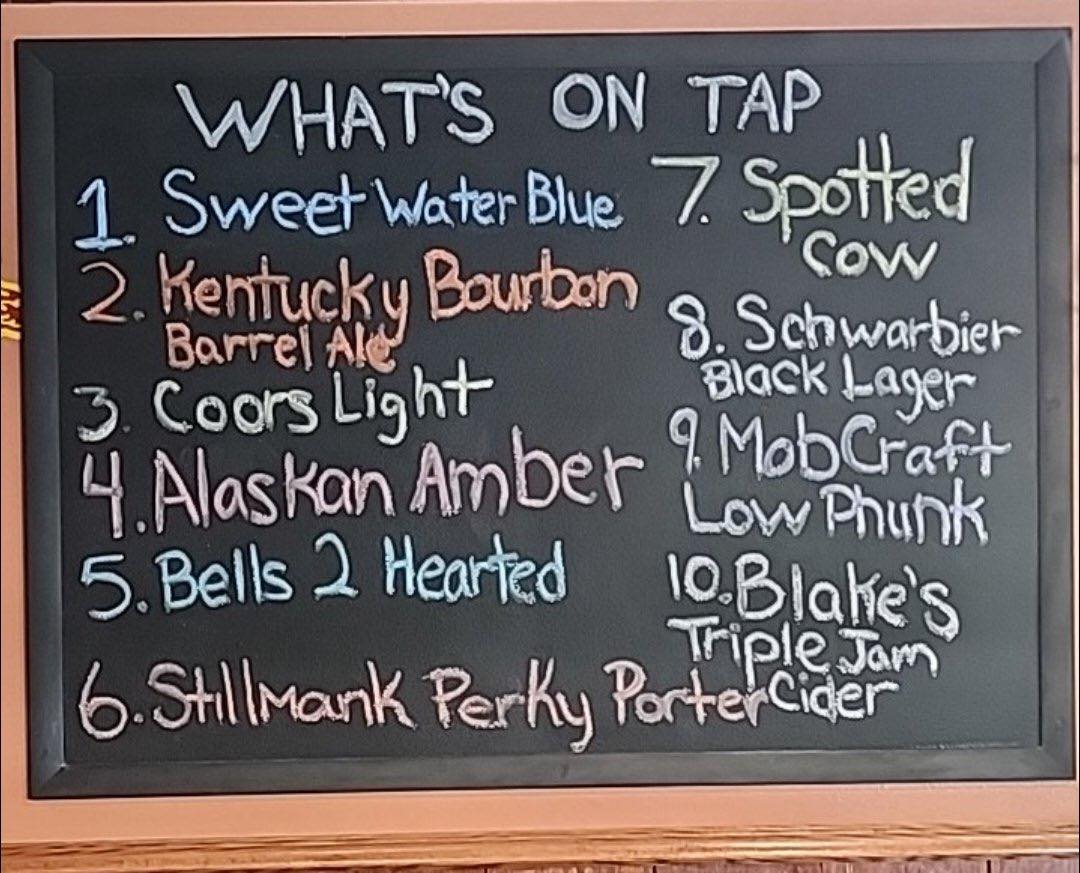 WHAT'S ON TAP
1. Sweet Water Blue
2. Kentucky Bourbon
Barrel Ale
3. Coors Light
4. Alaskan Amber
5. Bells 2 Hearted
6. Stillmank Perky Porter
7. Spotted
Cow
8. Schwarbier
Black Lager
9. MobCraft
Low Phunk
10. Blake's
Triple Jam
Cider